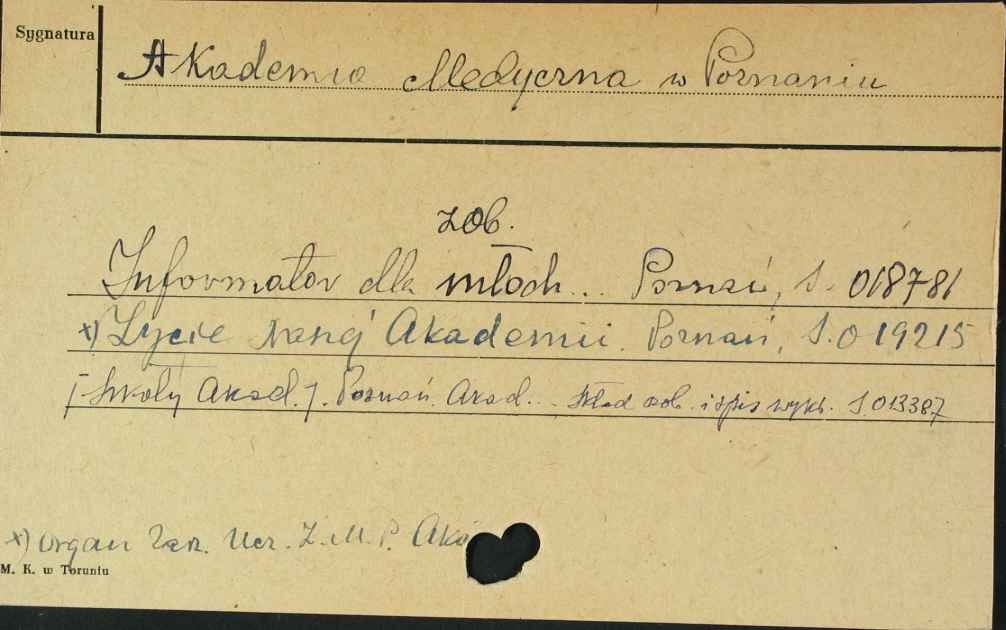 Sygnatura
Akademia Medyczna w Poznaniu
zob.
Informator dla młodz... Poznań, S. 018781
x) Życie Naszej Akademii. Poznań, S. 019215
[Szkoły Akad.]. Poznań. Akad... Skład osob. i spis wykł. S 013387
x) Organ Zarz. Ucz. Z.M.P. Aka
M. K. w Toruniu